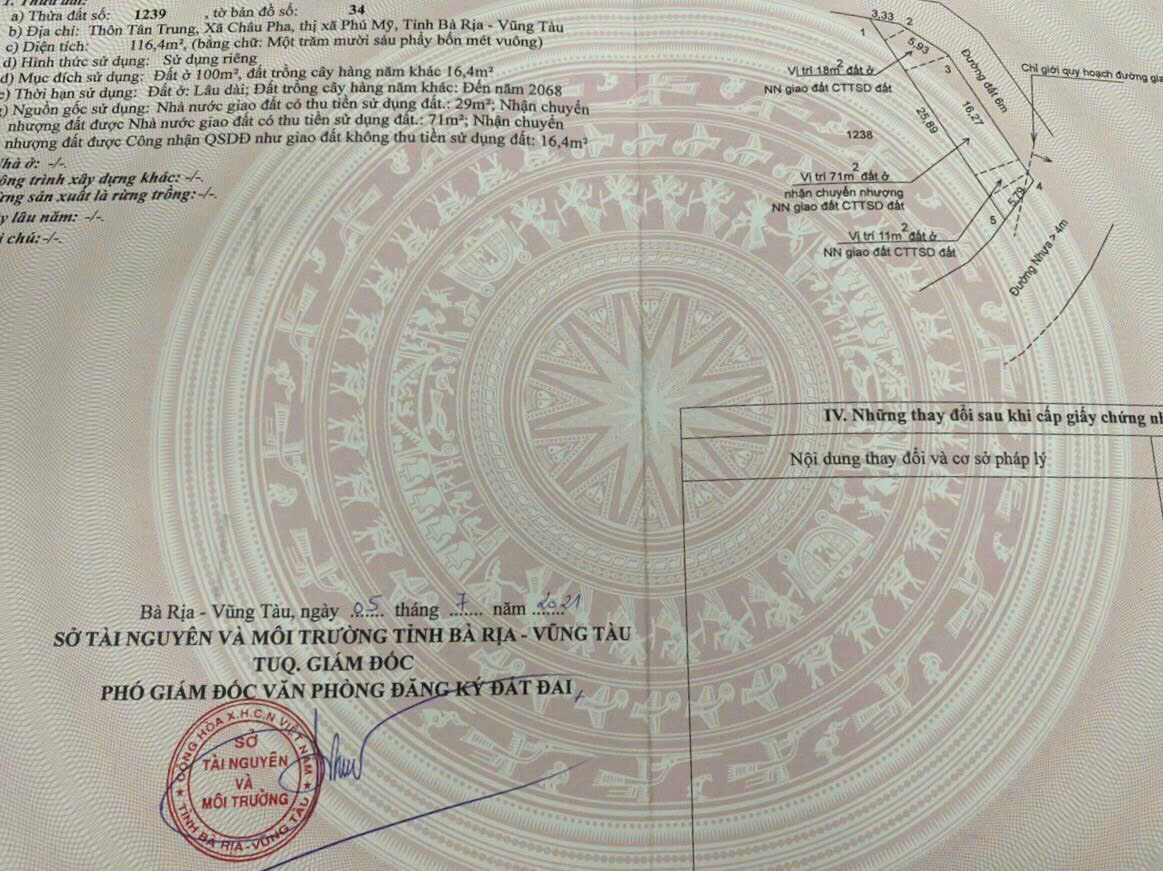 1. Thửa đất:
a) Thửa đất số: 1239 , tờ bản đồ số: 34
b) Địa chỉ: Thôn Tân Trung, Xã Châu Pha, thị xã Phú Mỹ, Tỉnh Bà Rịa - Vũng Tàu
c) Diện tích: 116,4m², (bằng chữ: Một trăm mười sáu phẩy bốn mét vuông)
d) Hình thức sử dụng: Sử dụng riêng
đ) Mục đích sử dụng: Đất ở 100m², đất trồng cây hàng năm khác 16,4m²
e) Thời hạn sử dụng: Đất ở: Lâu dài; Đất trồng cây hàng năm khác: Đến năm 2068
g) Nguồn gốc sử dụng: Nhà nước giao đất có thu tiền sử dụng đất.: 29m²; Nhận chuyển
nhượng đất được Nhà nước giao đất có thu tiền sử dụng đất.: 71m²; Nhận chuyển
nhượng đất được Công nhận QSDĐ như giao đất không thu tiền sử dụng đất: 16,4m²
Nhà ở: -/-.
ông trình xây dựng khác: -/-.
ừng sản xuất là rừng trồng: -/-.
y lâu năm: -/-.
i chú: -/-.
3,33
2
1
5,93
3
Đường đất 6m
Chỉ giới quy hoạch đường gia
Vị trí 18m² đất ở
NN giao đất CTTSD đất
25,89
16,27
1238
Vị trí 71m² đất ở
nhận chuyển nhượng
NN giao đất CTTSD đất
4
5,79
5
Vị trí 11m² đất ở
NN giao đất CTTSD đất
Đường Nhựa > 4m
IV. Những thay đổi sau khi cấp giấy chứng nh
Nội dung thay đổi và cơ sở pháp lý
Bà Rịa - Vũng Tàu, ngày 05 tháng 7 năm 2021
SỞ TÀI NGUYÊN VÀ MÔI TRƯỜNG TỈNH BÀ RỊA - VŨNG TÀU
TUQ. GIÁM ĐỐC
PHÓ GIÁM ĐỐC VĂN PHÒNG ĐĂNG KÝ ĐẤT ĐAI
CỘNG HÒA X.H.C.N VIỆT NAM
SỞ
TÀI NGUYÊN
VÀ
MÔI TRƯỜNG
TỈNH BÀ RỊA - VŨNG TÀU